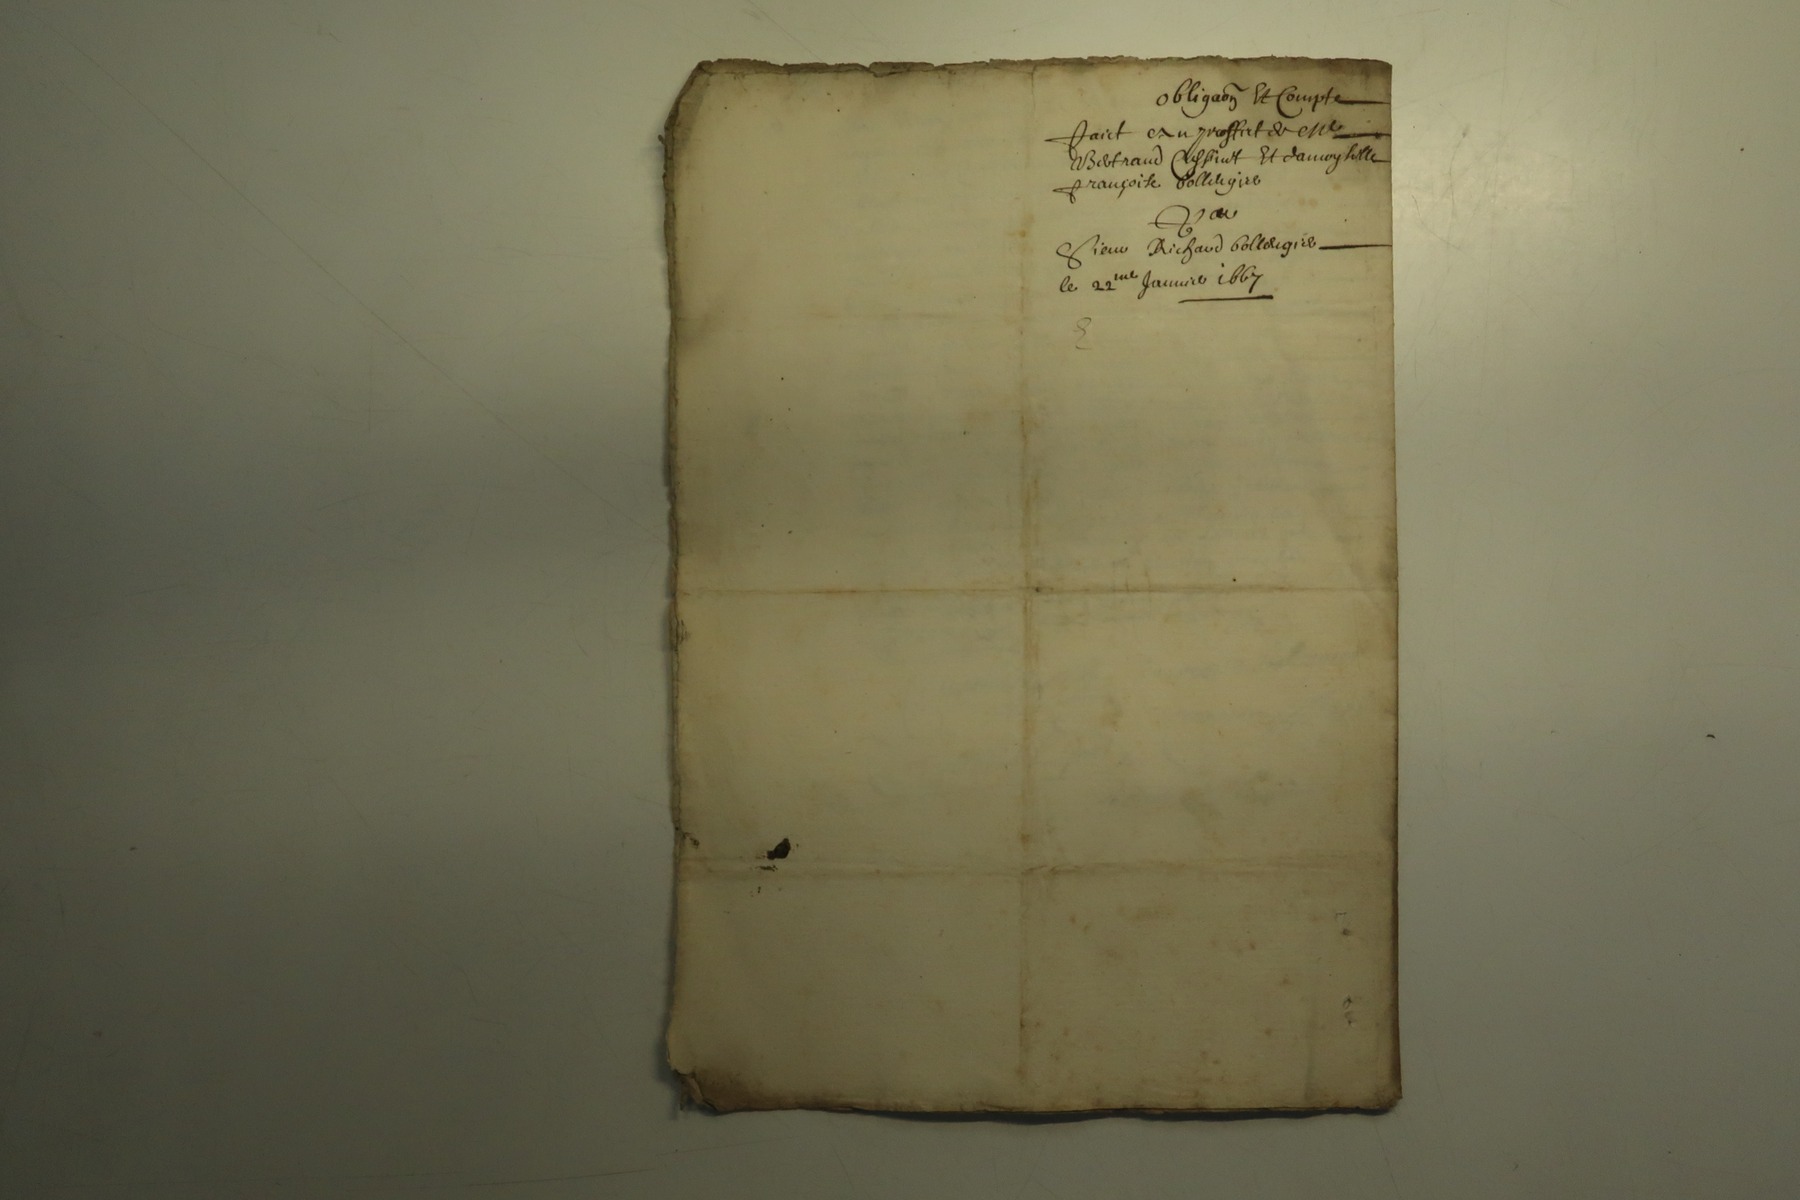 obligaõn Et Compte
faict au proffict de Me
Bertrand Et damoyselle
françoise bollengier
Par
Sieur Richard bollengier
le 22me Janvier 1667